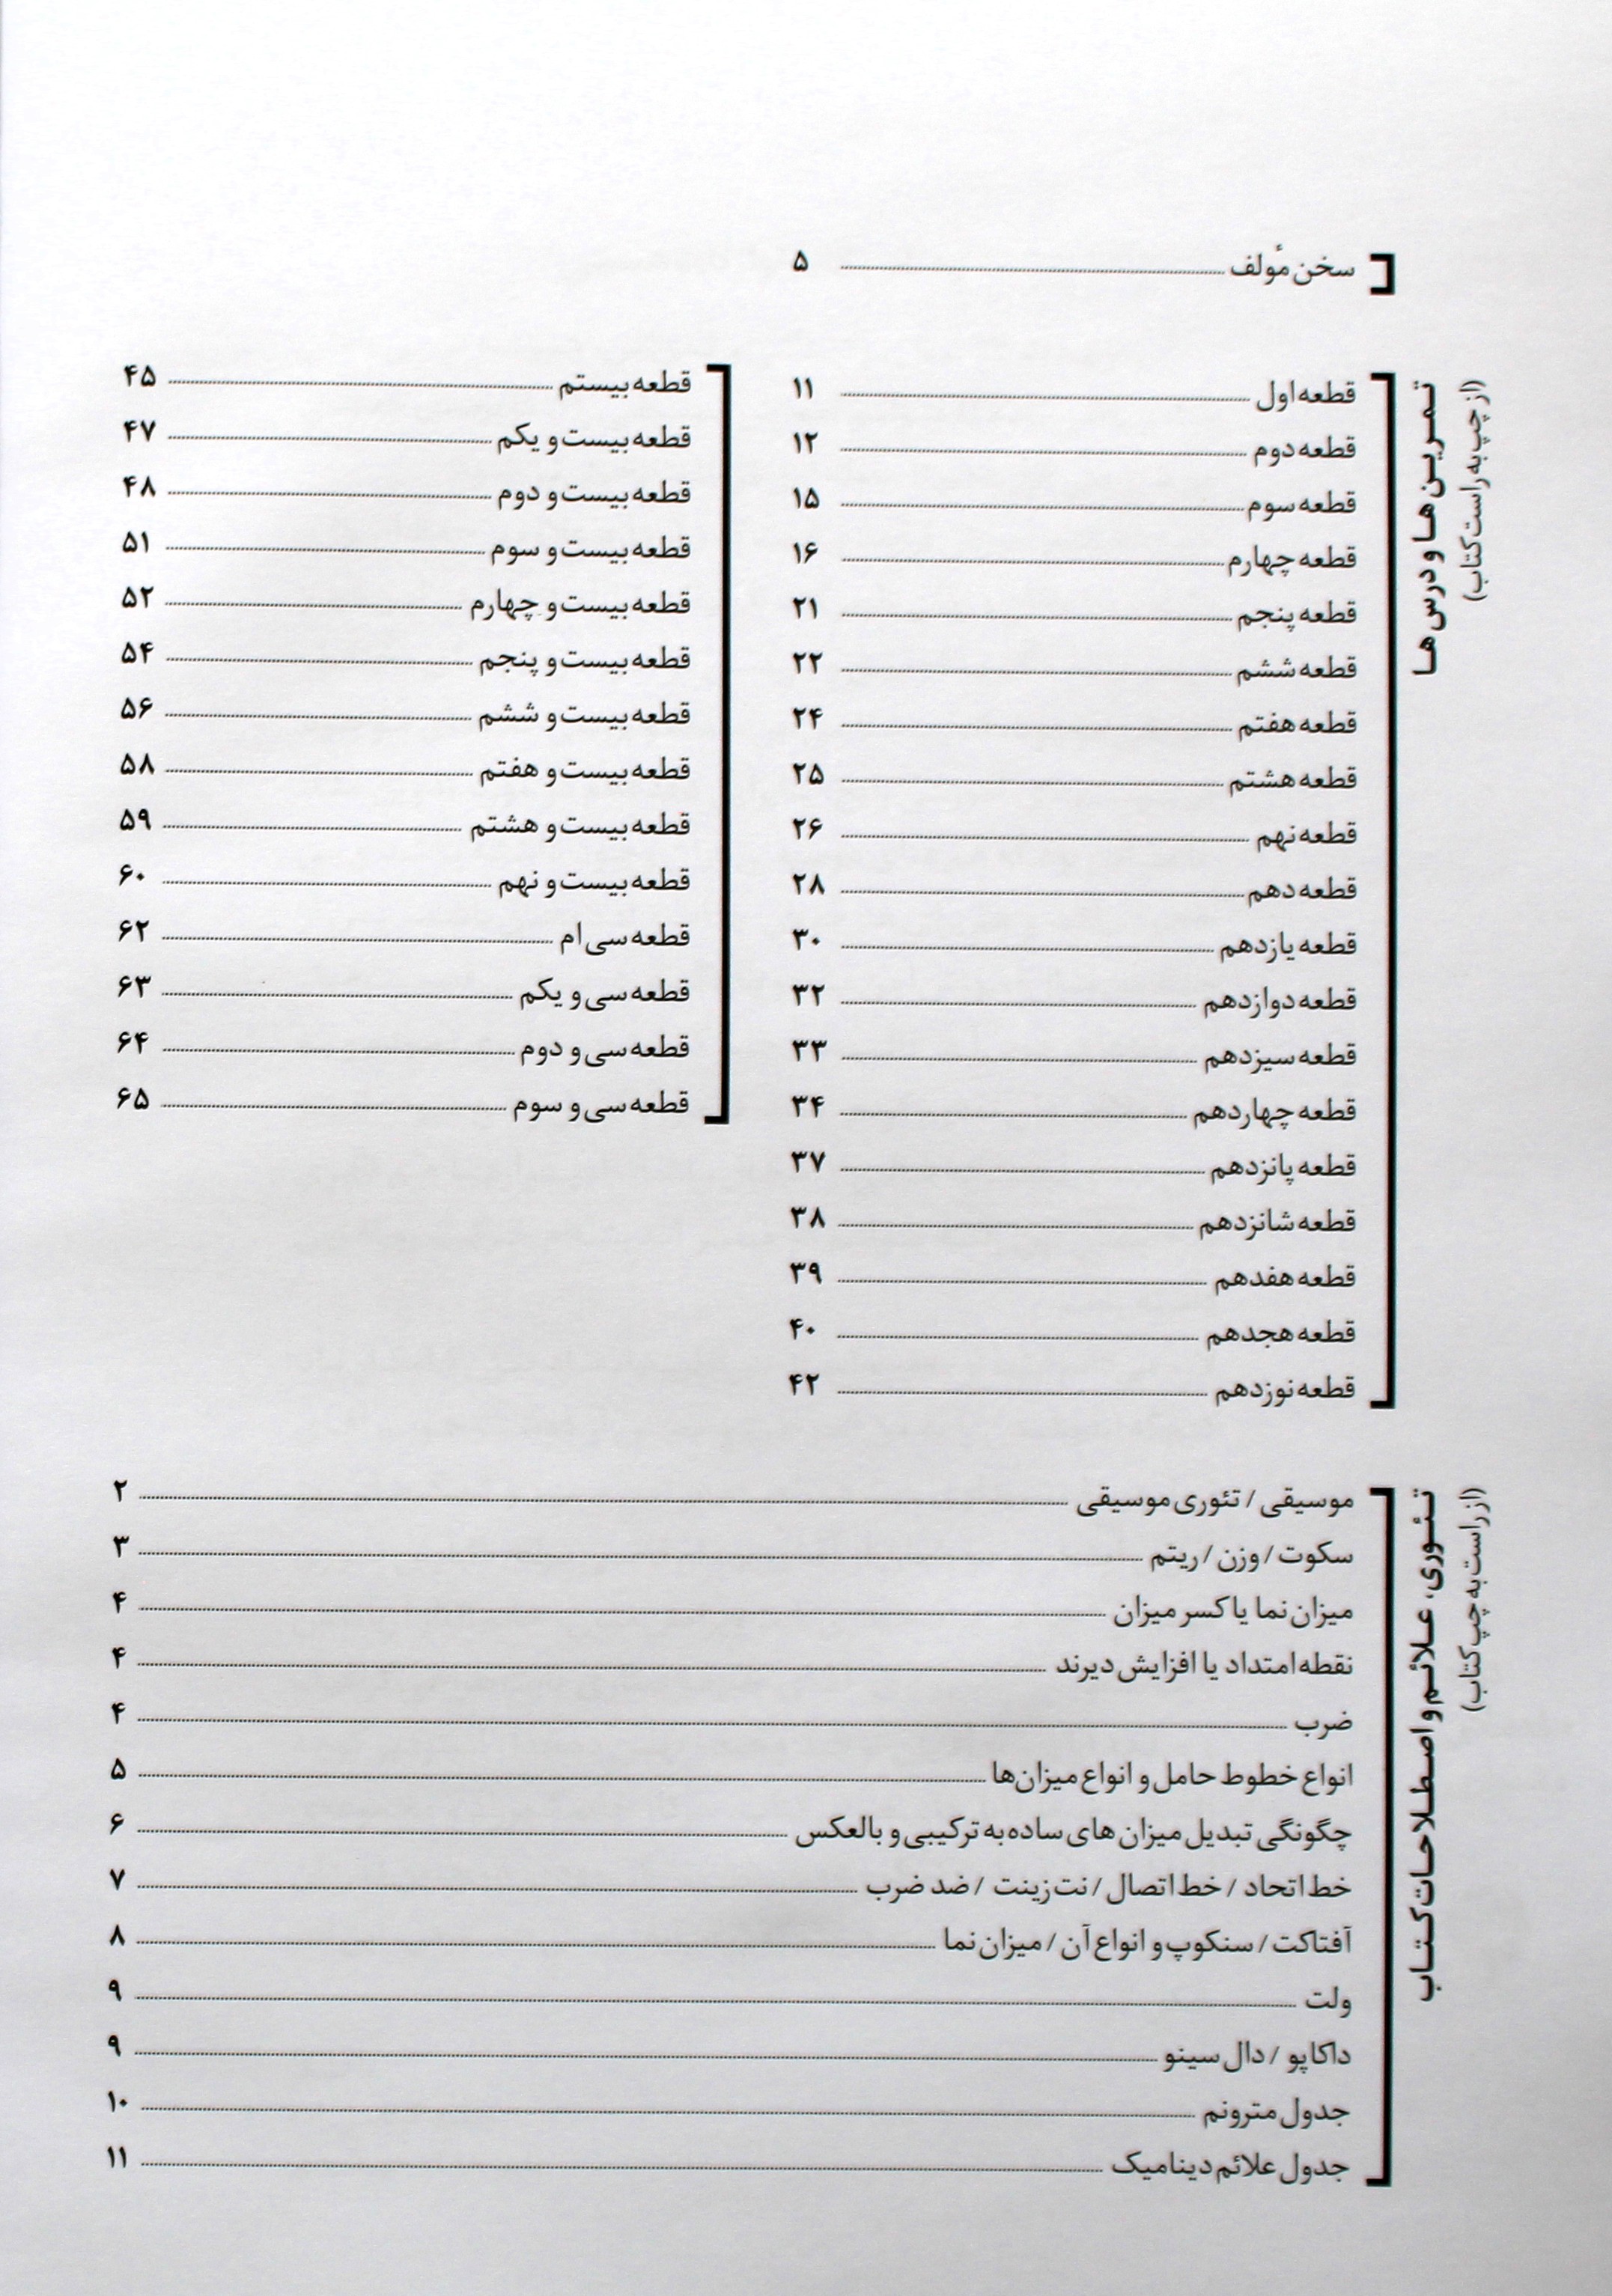 سخن مؤلف ۵
تمرین‌ها و درس‌ها
(از چپ به راست کتاب)
قطعه اول ۱۱
قطعه دوم ۱۲
قطعه سوم ۱۵
قطعه چهارم ۱۶
قطعه پنجم ۲۱
قطعه ششم ۲۲
قطعه هفتم ۲۴
قطعه هشتم ۲۵
قطعه نهم ۲۶
قطعه دهم ۲۸
قطعه یازدهم ۳۰
قطعه دوازدهم ۳۲
قطعه سیزدهم ۳۳
قطعه چهاردهم ۳۴
قطعه پانزدهم ۳۷
قطعه شانزدهم ۳۸
قطعه هفدهم ۳۹
قطعه هجدهم ۴۰
قطعه نوزدهم ۴۲
قطعه بیستم ۴۵
قطعه بیست و یکم ۴۷
قطعه بیست و دوم ۴۸
قطعه بیست و سوم ۵۱
قطعه بیست و چهارم ۵۲
قطعه بیست و پنجم ۵۴
قطعه بیست و ششم ۵۶
قطعه بیست و هفتم ۵۸
قطعه بیست و هشتم ۵۹
قطعه بیست و نهم ۶۰
قطعه سی ام ۶۲
قطعه سی و یکم ۶۳
قطعه سی و دوم ۶۴
قطعه سی و سوم ۶۵
تئوری، علائم و اصطلاحات کتاب
(از راست به چپ کتاب)
موسیقی / تئوری موسیقی ۲
سکوت / وزن / ریتم ۳
میزان نما یا کسر میزان ۴
نقطه امتداد یا افزایش دیرند ۴
ضرب ۴
انواع خطوط حامل و انواع میزان‌ها ۵
چگونگی تبدیل میزان های ساده به ترکیبی و بالعکس ۶
خط اتحاد / خط اتصال / نت زینت / ضد ضرب ۷
آفتاکت / سنکوپ و انواع آن / میزان نما ۸
ولت ۹
داکاپو / دال سینو ۹
جدول مترونم ۱۰
جدول علائم دینامیک ۱۱